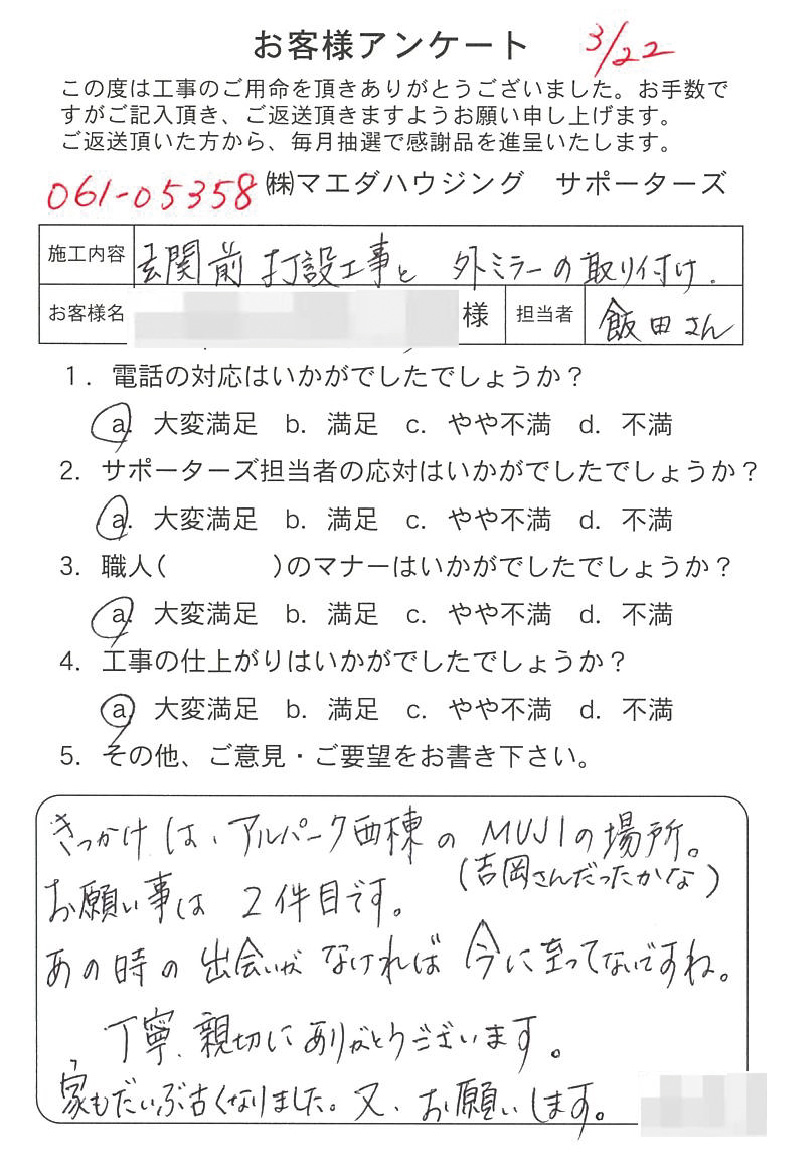 お客様アンケート 3/22
この度は工事のご用命を頂きありがとうございました。お手数で
すがご記入頂き、ご返送頂きますようお願い申し上げます。
ご返送頂いた方から、毎月抽選で感謝品を進呈いたします。
061-05358 ㈱マエダハウジング サポーターズ
施工内容 玄関前 打設工事と 外ミラーの取り付け.
お客様名 様 担当者 飯田さん
1. 電話の対応はいかがでしたでしょうか?
a. 大変満足 b. 満足 c. やや不満 d. 不満
2. サポーターズ担当者の応対はいかがでしたでしょうか?
a. 大変満足 b. 満足 c. やや不満 d. 不満
3. 職人( )のマナーはいかがでしたでしょうか?
a. 大変満足 b. 満足 c. やや不満 d. 不満
4. 工事の仕上がりはいかがでしたでしょうか?
a. 大変満足 b. 満足 c. やや不満 d. 不満
5. その他、ご意見・ご要望をお書き下さい。
きっかけは、アルパーク西棟の MUJIの場所。
(吉岡さんだったかな)
お願い事は 2件目です。
あの時の出会いがなければ 今に至ってないですね。
丁寧、親切にありがとうございます。
家もだいぶ古くなりました。又、お願いします。